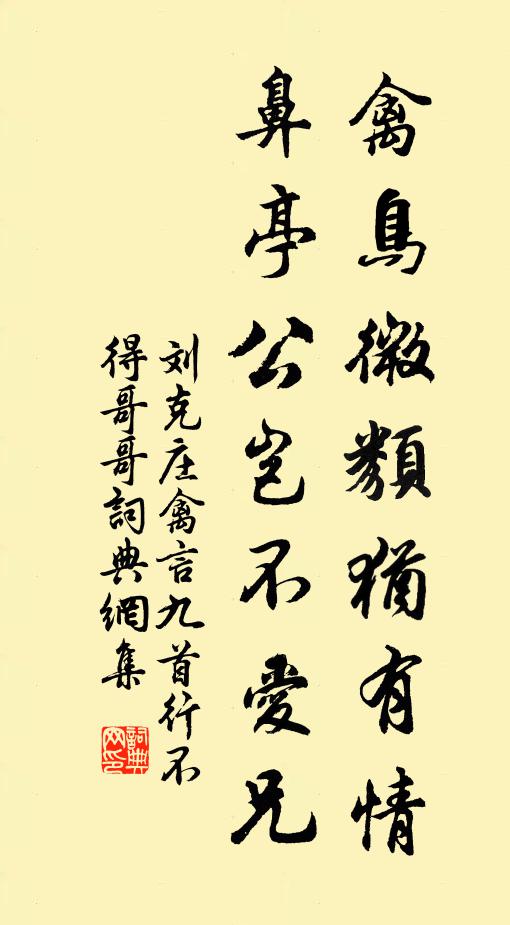 禽鳥微類猶有情
鼻亭公豈不愛兄
刘克庄禽言九首行不
得哥哥詞典網集
詞典
网印